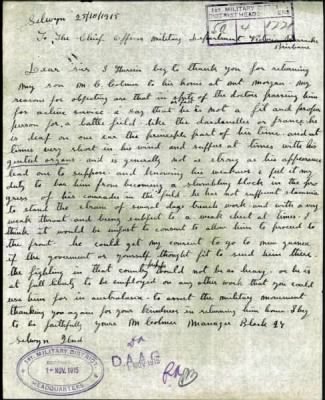 Selwyn 25/10/1915
1ST MILITARY DISTRICT HEADQUARTERS
To The Chief Officer Military Department
Brisbane
Dear Sir I Herein beg to thank you for returning
my son M. C. Colmer to his home at out morgan. my
reason for objecting are that in spite of the doctors passing him
for active service I say that he is not a fit and
person for a battle field like the dardanelles or france. he
is deaf on one ear the principle part of his time. and at
times very short in his wind and suffers at times with his
genital organs and is generally not as strong as his appearence
lead one to suppose and knowing his weakness I feel it my
duty to bar him from becoming a stumbling block in the pro
gress of his comrads in the field He has not sufficent stamina
to stand the strain of several days trench work and with a very
weak throat and being subject to a weak chest at times I
think it would be unjust to consent to allow him to proceed to
the front. he could get my consent to go to new guinea
if the government or yourself thought fit to send him there
the fighting in that country would not be so heavy. or he is
at full liberty to be employed on any other work that you could
use him for in australasia to assist the military movement
thanking you again for your kindness in returning him home I beg
to be faithfully yours M Colmer Manager Block 24
Selwyn Qland
1ST MILITARY DISTRICT
1 NOV. 1915
HEADQUARTERS
D.A.A.G.
NOV 1915